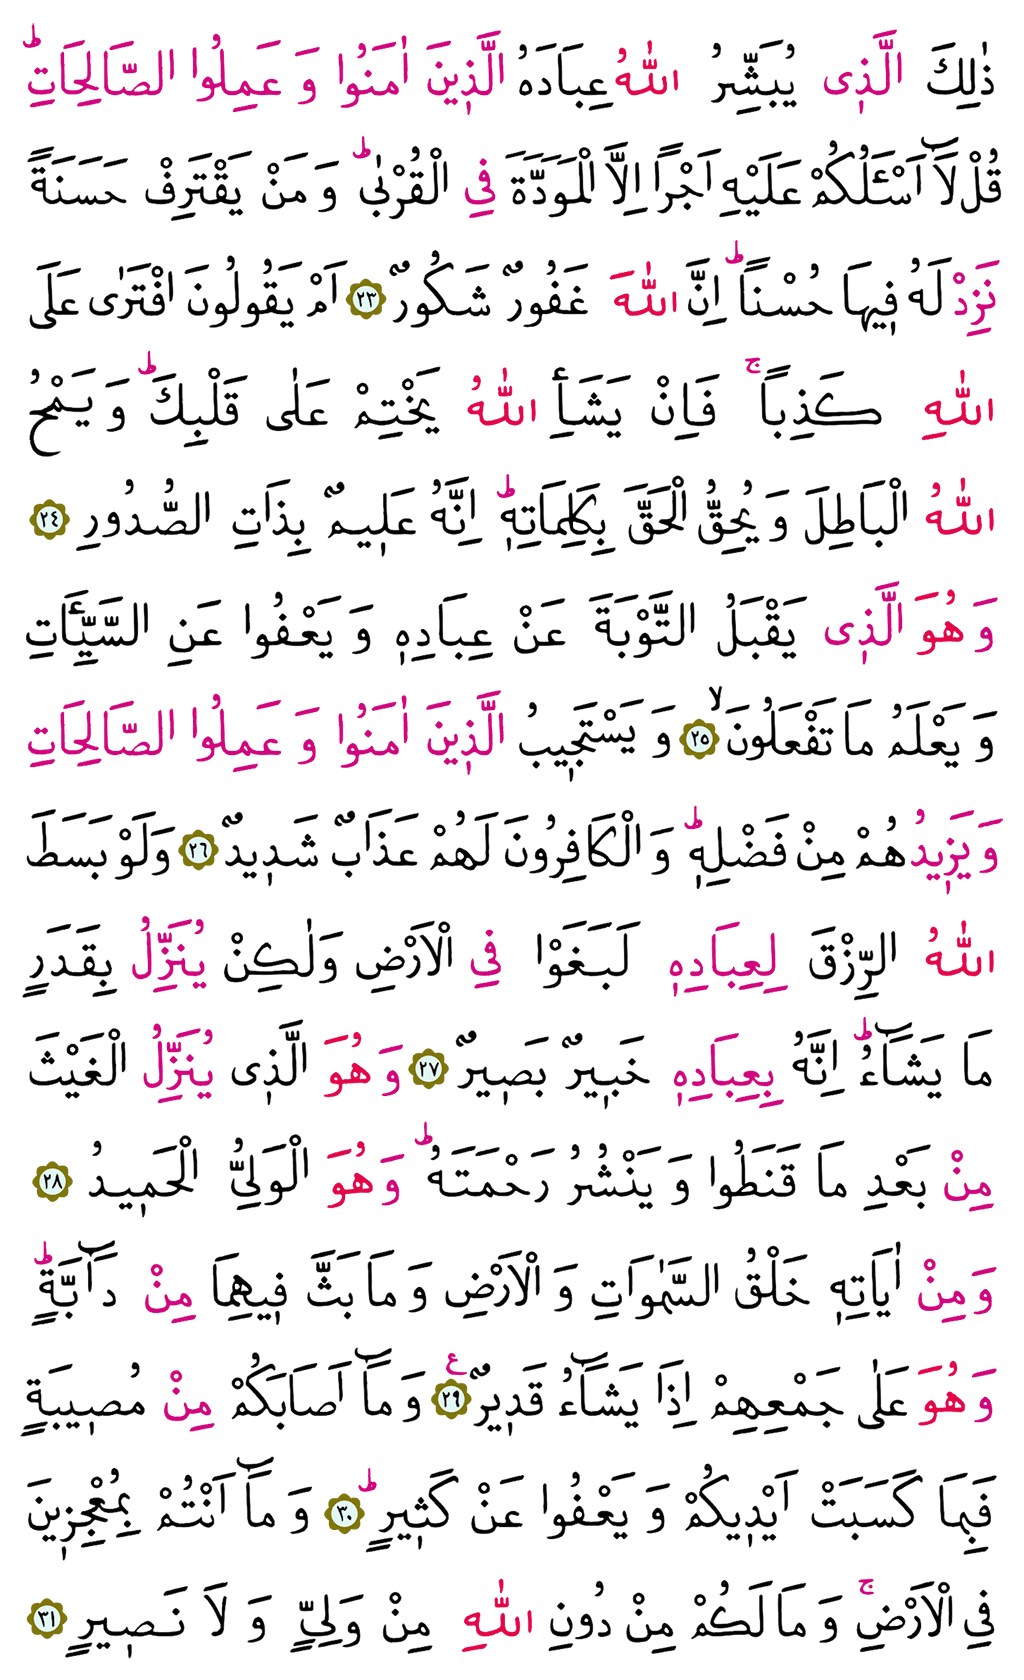 ذٰلِكَ الَّذ۪ى يُبَشِّرُ اللّٰهُ عِبَادَهُ الَّذ۪ينَ اٰمَنُوا وَ عَمِلُوا الصَّالِحَاتِۜ
قُلْ لَٓا اَسْـَٔلُكُمْ عَلَيْهِ اَجْرًا اِلَّا الْمَوَدَّةَ فِى الْقُرْبٰىۜ وَ مَنْ يَقْتَرِفْ حَسَنَةً
نَزِدْ لَهُ ف۪يهَا حُسْنًاۜ اِنَّ اللّٰهَ غَفُورٌ شَكُورٌ ﴿٢٣﴾ اَمْ يَقُولُونَ افْتَرٰى عَلَى
اللّٰهِ كَذِبًاۚ فَاِنْ يَشَأِ اللّٰهُ يَخْتِمْ عَلٰى قَلْبِكَۜ وَ يَمْحُ
اللّٰهُ الْبَاطِلَ وَ يُحِقُّ الْحَقَّ بِكَلِمَاتِه۪ۜ اِنَّهُ عَل۪يمٌ بِذَاتِ الصُّدُورِ ﴿٢٤﴾
وَ هُوَ الَّذ۪ى يَقْبَلُ التَّوْبَةَ عَنْ عِبَادِه۪ وَ يَعْفُوا عَنِ السَّيِّـَٔاتِ
وَ يَعْلَمُ مَا تَفْعَلُونَۙ ﴿٢٥﴾ وَ يَسْتَج۪يبُ الَّذ۪ينَ اٰمَنُوا وَ عَمِلُوا الصَّالِحَاتِ
وَ يَز۪يدُهُمْ مِنْ فَضْلِه۪ۜ وَ الْكَافِرُونَ لَهُمْ عَذَابٌ شَد۪يدٌ ﴿٢٦﴾ وَلَوْ بَسَطَ
اللّٰهُ الرِّزْقَ لِعِبَادِه۪ لَبَغَوْا فِى الْاَرْضِ وَلٰكِنْ يُنَزِّلُ بِقَدَرٍ
مَا يَشَٓاءُۜ اِنَّهُ بِعِبَادِه۪ خَب۪يرٌ بَص۪يرٌ ﴿٢٧﴾ وَ هُوَ الَّذ۪ى يُنَزِّلُ الْغَيْثَ
مِنْ بَعْدِ مَا قَنَطُوا وَ يَنْشُرُ رَحْمَتَهُۜ وَ هُوَ الْوَلِىُّ الْحَم۪يدُ ﴿٢٨﴾
وَ مِنْ اٰيَاتِه۪ خَلْقُ السَّمٰوَاتِ وَ الْاَرْضِ وَ مَا بَثَّ ف۪يهِمَا مِنْ دَٓابَّةٍۜ
وَ هُوَ عَلٰى جَمْعِهِمْ اِذَا يَشَٓاءُ قَد۪يرٌ ﴿٢٩﴾ع وَ مَٓا اَصَابَكُمْ مِنْ مُص۪يبَةٍ
فَبِمَا كَسَبَتْ اَيْد۪يكُمْ وَ يَعْفُوا عَنْ كَث۪يرٍۜ ﴿٣٠﴾ وَ مَٓا اَنْتُمْ بِمُعْجِز۪ينَ
فِى الْاَرْضِۚ وَ مَا لَكُمْ مِنْ دُونِ اللّٰهِ مِنْ وَلِىٍّ وَ لَا نَص۪يرٍ ﴿٣١﴾